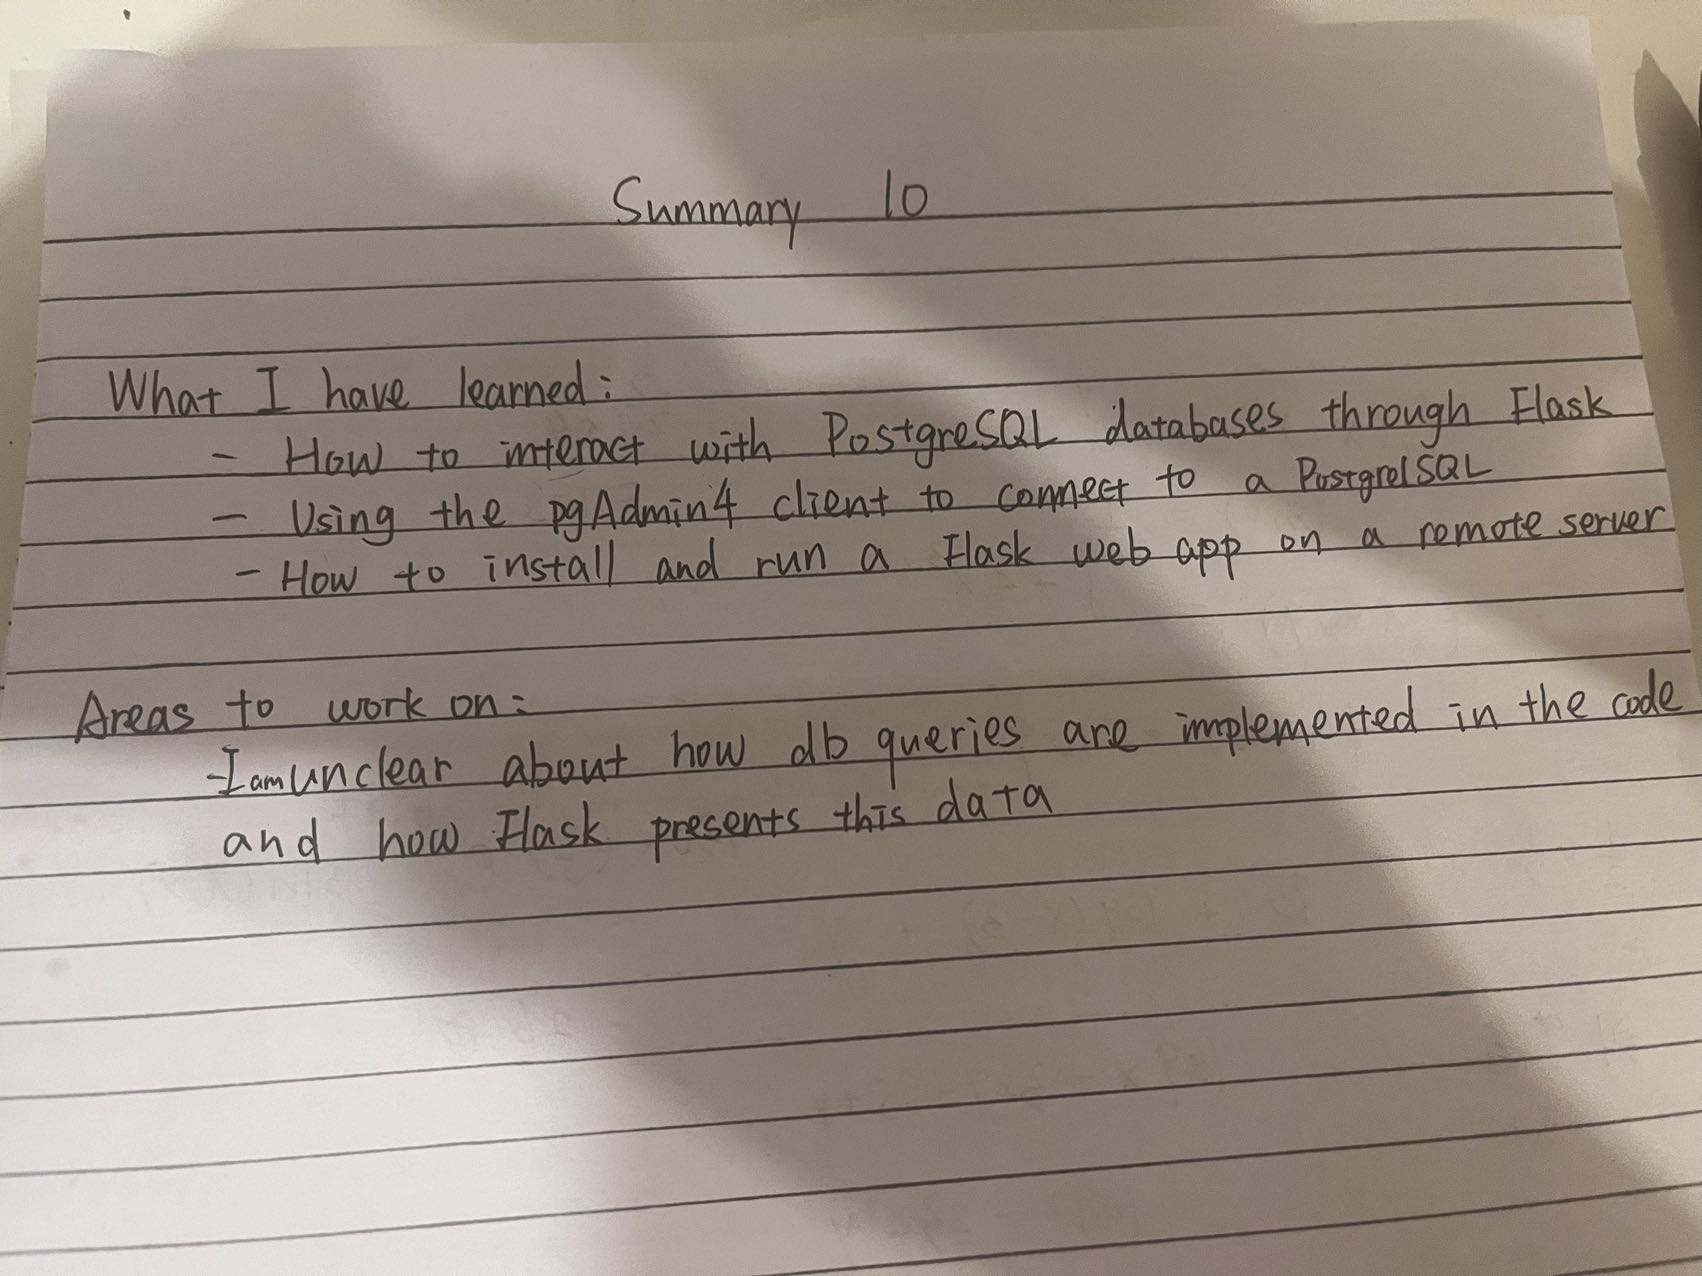 Summary 10
What I have learned:
- How to interact with PostgreSQL databases through Flask
- Using the pgAdmin4 client to connect to a PostgrelSQL
- How to install and run a Flask web app on a remote server
Areas to work on:
- I am unclear about how db queries are implemented in the code
and how Flask presents this data